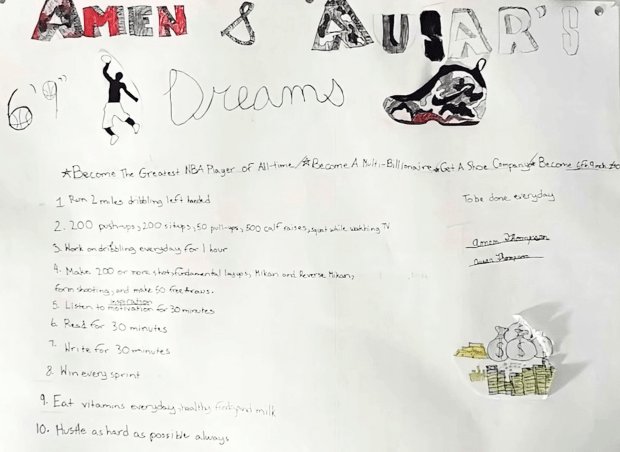 AMEN & AUSAR'S
6'9" Dreams
☆Become The Greatest NBA Player of All-time ☆Become A Multi-Billionaire ☆Get A Shoe Company ☆Become 6ft. 9 inch
1. Run 2 miles dribbling left handed
To be done everyday
2. 200 push-ups, 200 situps, 50 pull-ups, 500 calf raises, squat while watching TV
3. Work on dribbling everyday for 1 hour
Amen Thompson
4. Make 200 or more shots, fundamental layups, Mikan and Reverse Mikan,
Ausar Thompson
form shooting, and make 50 free throws.
5. Listen to inspiration motivation for 30 minutes
6. Read for 30 minutes
7. Write for 30 minutes
8. Win every sprint
9. Eat vitamins everyday, healthy foods, and milk
10. Hustle as hard as possible always